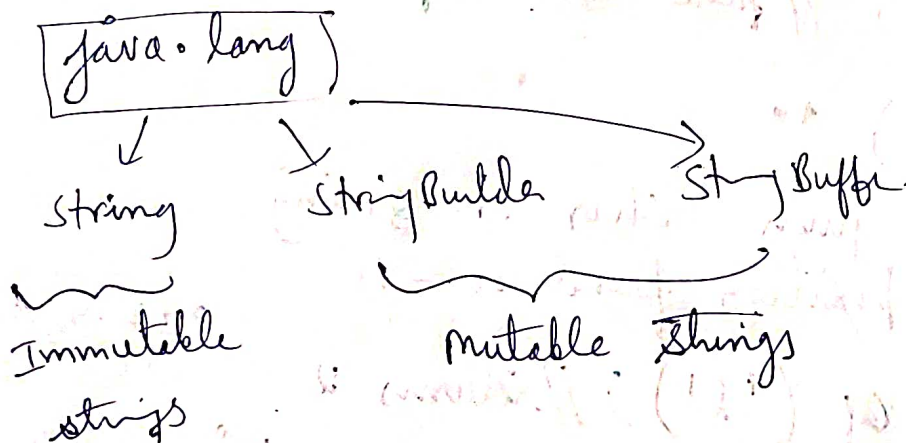 java.lang
String StringBuilder StringBuffer
Immutable Mutable Strings
strings